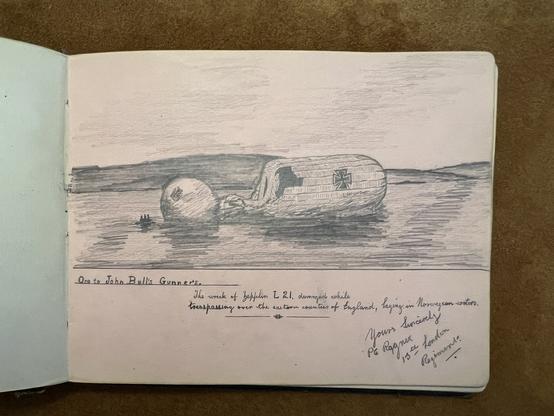 One to John Bull's Gunners.
The wreck of Zeppelin L 21, damaged while
trespassing over the eastern counties of England, laying in Norwegian waters.
Yours Sincerely
Pte
13th London
Regiment.